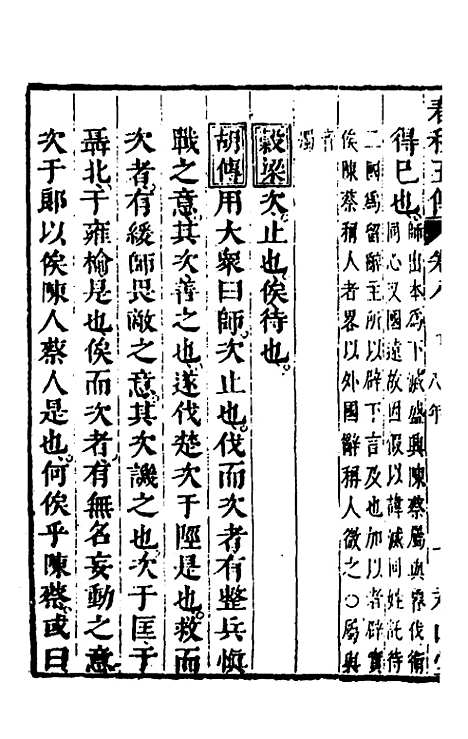 得已也師出本爲下滅盛興陳蔡屬與魯伐衛
同心又國遠故因假以諱滅同姓託待
二國爲留辭主所以辟下言及也加以者辟實
俟陳蔡稱人者畧以外國辭稱人微之○屬與
音
濁
穀梁次止也俟待也
胡傳用大衆曰師次止也伐而次者有整兵愼
戰之意其次善之也遂伐楚次于陘是也救而
次者有緩師畏敵之意其次譏之也次于匡于
聶北于雍榆是也俟而次者有無名妄動之意
次于郎以俟陳人蔡人是也何俟乎陳蔡或曰